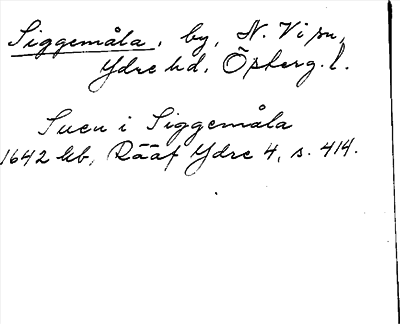 Siggemåla, by, N. Vi sn,
Ydre hd, Östergl.
Suen i Siggemåla
1642 kb, Rääf Ydre 4, s. 414.